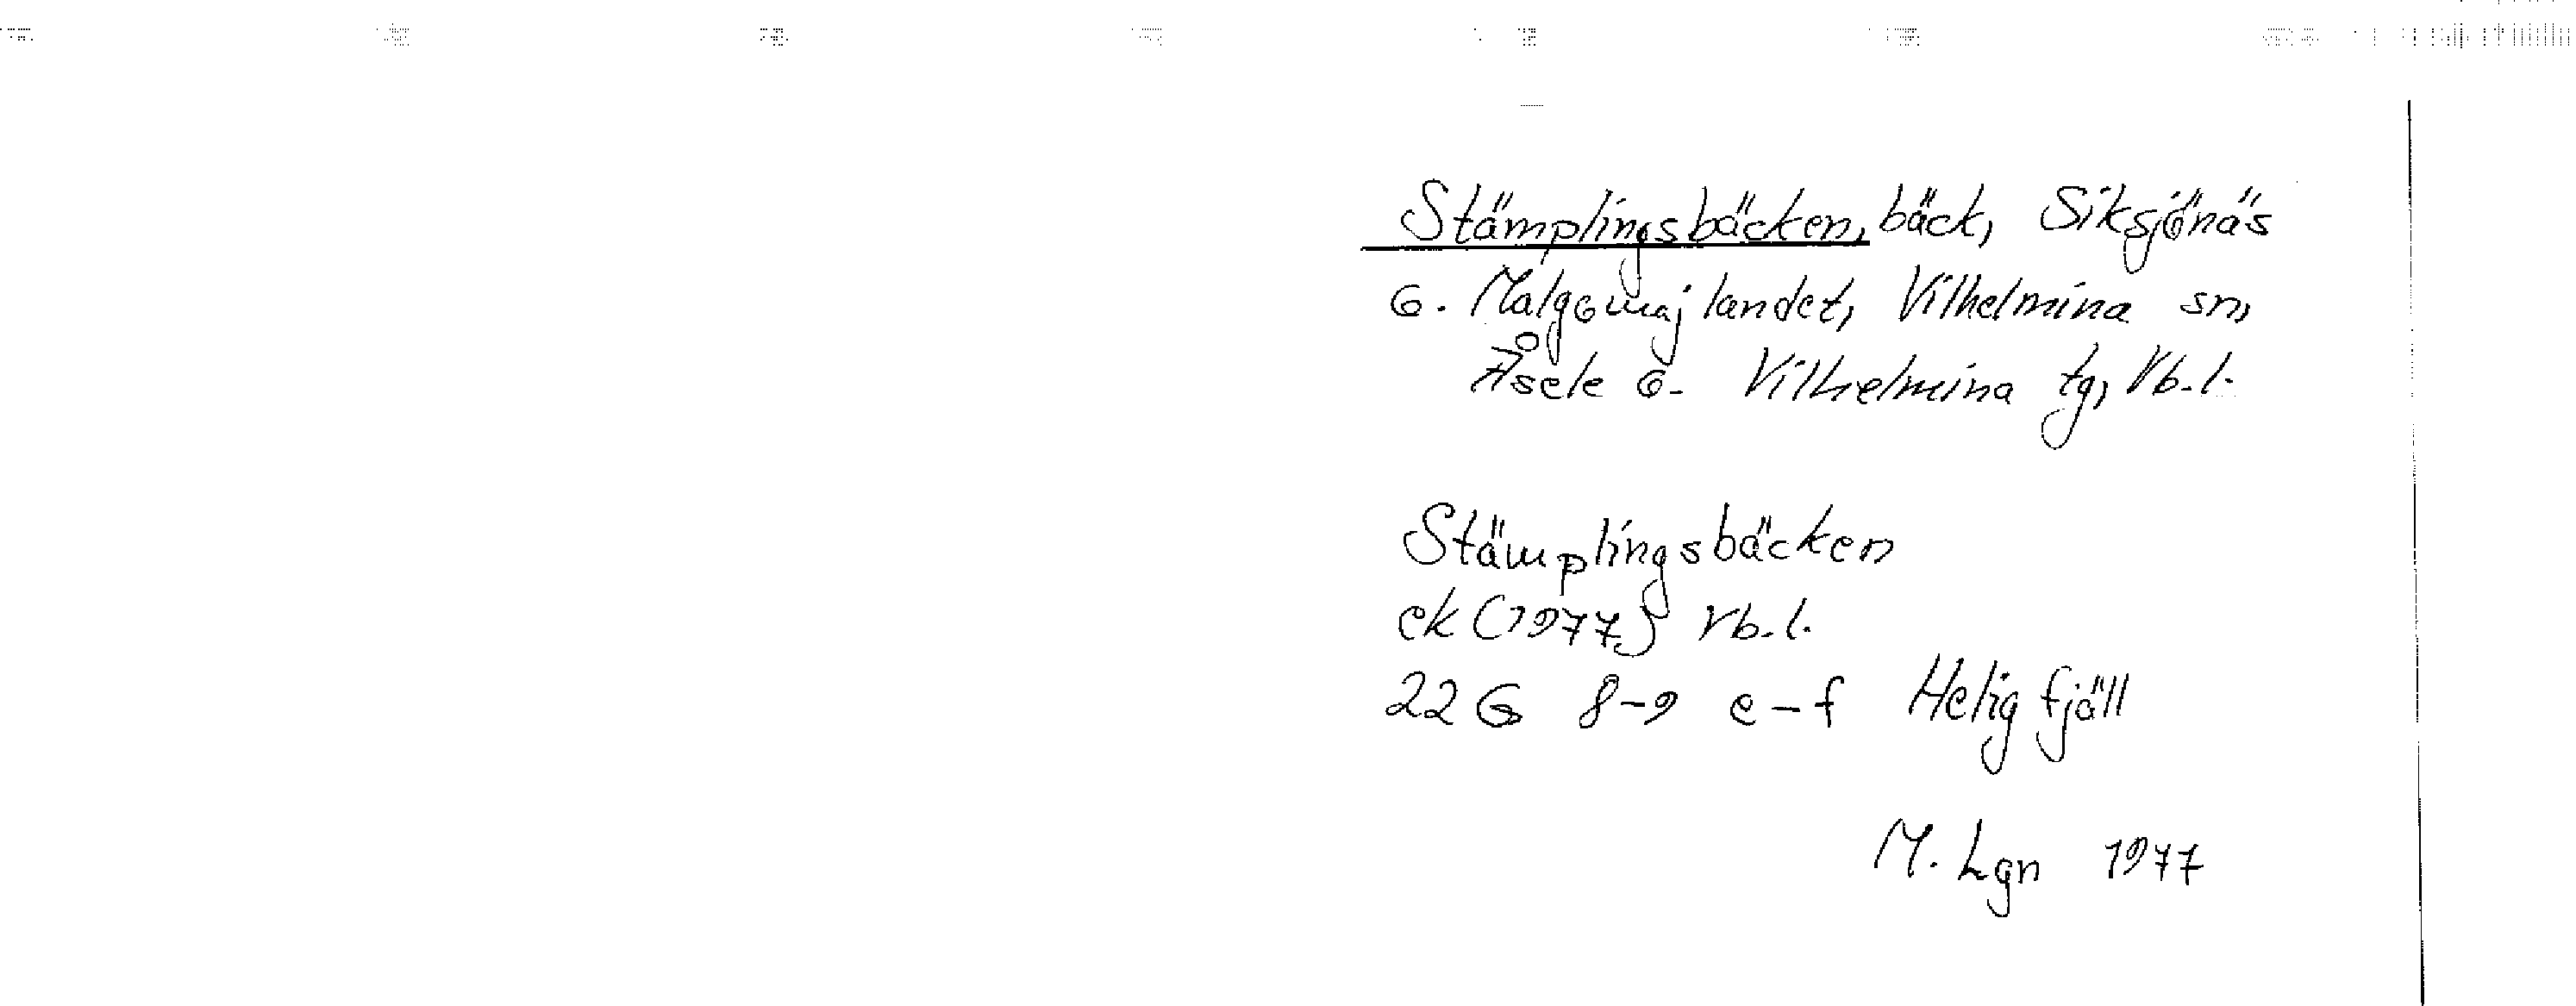 Stämplingsbäcken, bäck, Siksjönäs
o. Malgomajlandet, Vilhelmina sn,
Åsele o. Vilhelmina tg, Vb.l.
Stämplingsbäcken
ek (1977) Vb.l.
22 G 8-9 e-f Heligfjäll
M. Lgn 1977